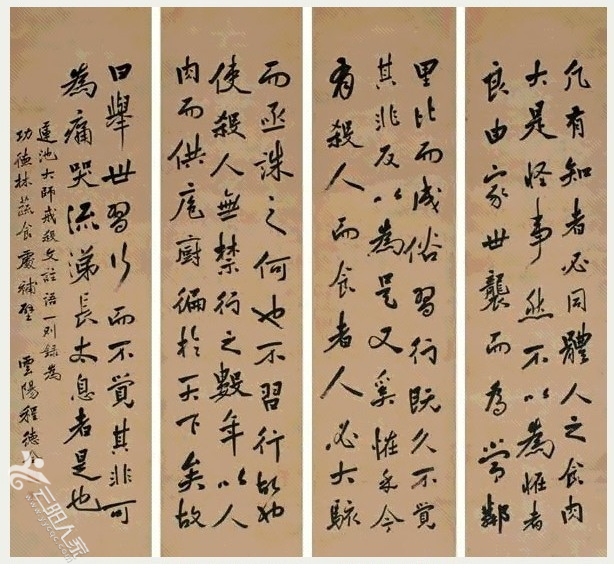 凡有知者必同體人之食肉
大是怪事然不以為恠者
良由家世襲而為常鄰
里比而成俗習行既久不覺
其非反以為是又奚恠乎今
有殺人而食者人必大駭
而亟誅之何也不習行故也
使殺人無禁行之數年以人
肉而供庖廚徧於天下矣故
曰舉世習行而不覺其非可
為痛哭流涕長太息者是也
蓮池大師戒殺文註語一則錄為
功德林蔬食處補壁 雲陽程德全
云阳人家